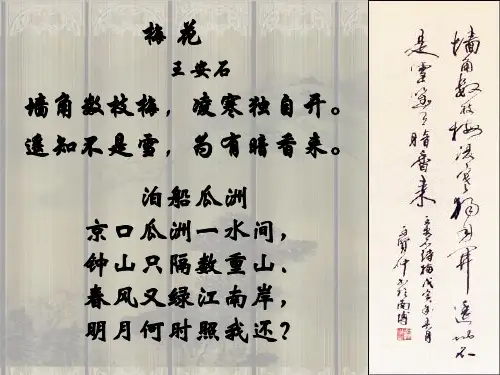 梅花
王安石
墙角数枝梅，凌寒独自开。
遥知不是雪，为有暗香来。
泊船瓜洲
京口瓜洲一水间，
钟山只隔数重山．
春风又绿江南岸，
明月何时照我还？
墙角数枝梅凌寒独自开遥知不
是雪为有暗香来